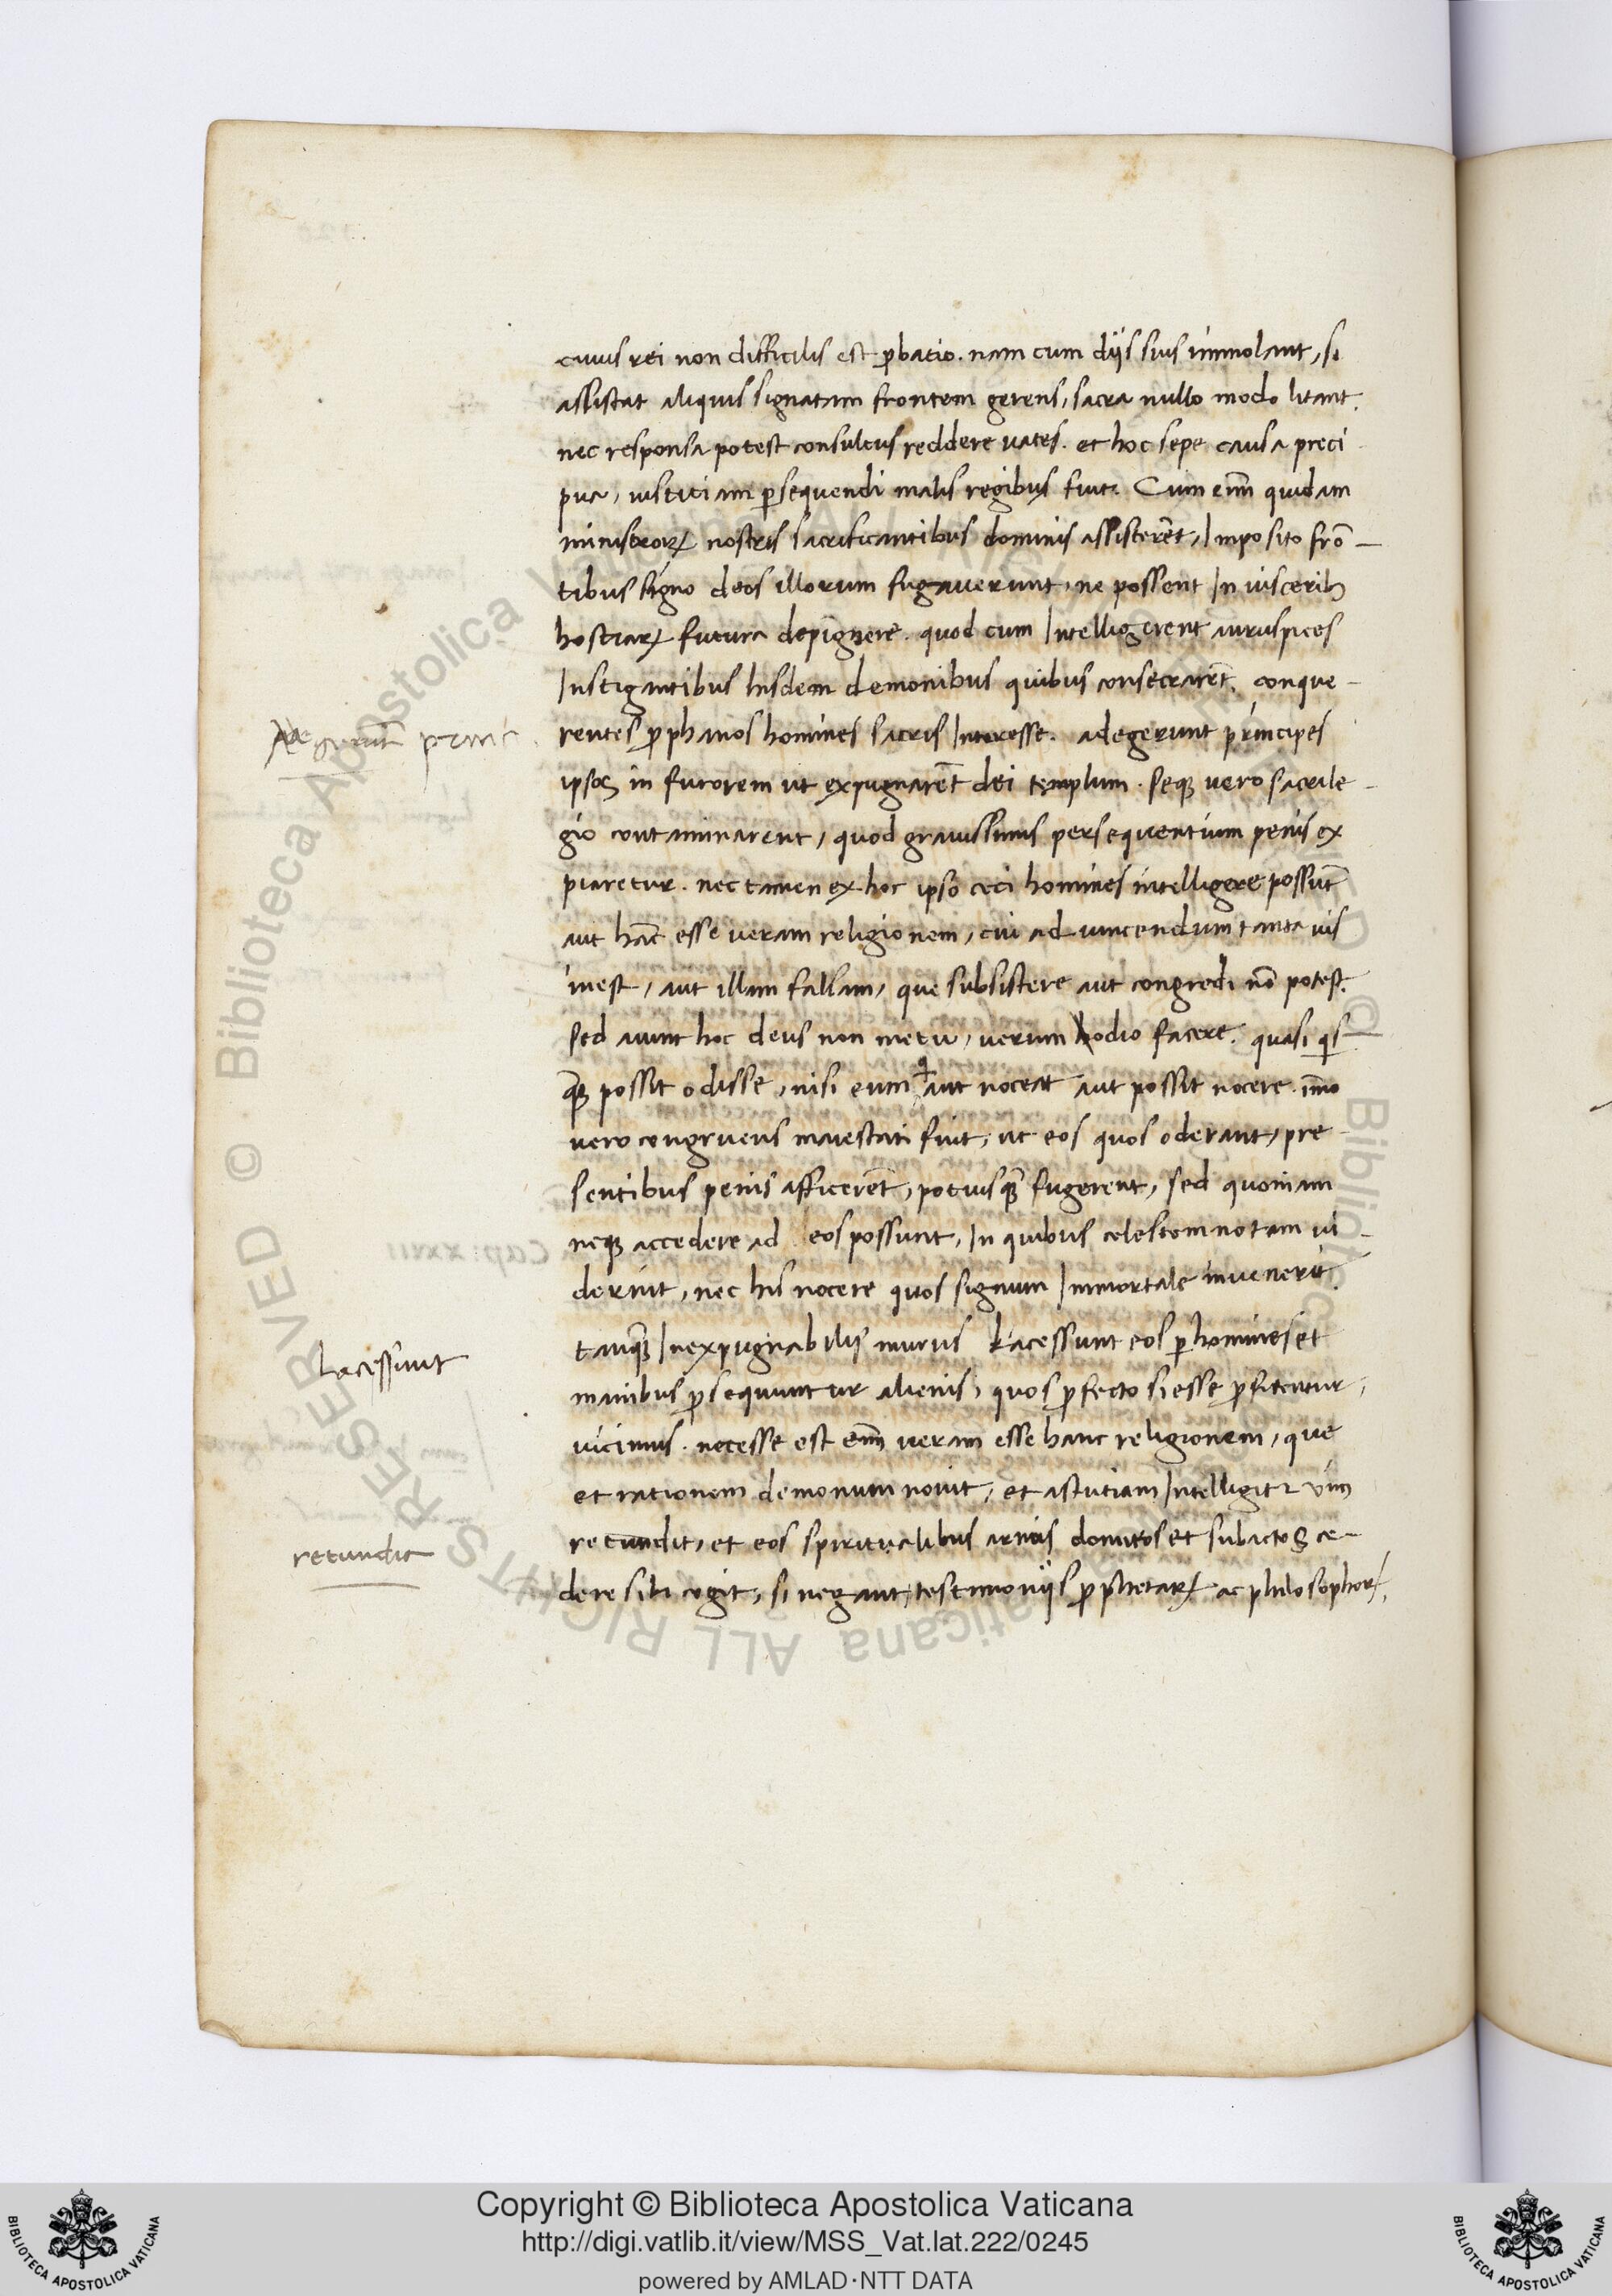 cuius rei non difficilis est ꝓbatio. nam cum diis suis immolant, si
assistat aliquis signatam frontem gerens, sacra nullo modo litant.
nec responsa potest consultus reddere uates. et hoc sepe causa preci
pua, iustitiam ꝑsequendi malis regibus fuit. Cum enim̄ quidam
ministroꝝ nostris sacrificantibus dominis assisterēt, Imposito frō-
tibus signo deos illorum fugauerunt, ne possent In uisceribꝫ
hostiaꝝ futura depignere. quod cum Intelligerent auruspices
Instigantibus hisdem demonibus quibus consecrarēt. conque-
rentes ꝓphanos homines sacris Interesse. adegerunt principes
ipsos in furorem ut expugnarēt dei templum. seqꝫ uero sacrile-
gio contaminarent, quod grauissimis persequentium penis ex
piaretur. nec tamen ex hoc ipso ceci homines intelligere possūt
aut hāc esse ueram religionem, cui ad uincendum tanta uis
inest, aut illam falsam, que subsistere aut congredi nō potest.
Sed aiunt hoc deus non metu, uerum hodio facere. quasi qis
qꝫ possit odisse, nisi eum aut noceat aut possit nocere. īmo
uero congruens maiestati fuit, ut eos quos oderant, pre-
sentibus penis afficerēt, potiusqꝫ fugerent, sed quoniam
neqꝫ accedere ad eos possunt, In quibus celestem notam ui-
derint, nec his nocere quos signum Immortale inuenerit
tanqꝫ Inexpugnabilis murus Lacessunt eos ꝑ homines et
manibus ꝑsequuntur alienis, quos ꝓfecto si esse ꝓfitentur,
uicimus. necesse est enim̄ ueram esse hanc religionem, que
et rationem demonum nouit, et astutiam Intelligit et uim
retundit, et eos spiritualibus armis domitos et subactos ce-
dere sibi cogit, si negant, testimoniis ꝓphetaꝝ ac philosophoꝝ,
Lacessiunt
retundit
Copyright © Biblioteca Apostolica Vaticana
http://digi.vatlib.it/view/MSS_Vat.lat.222/0245
powered by AMLAD·NTT DATA
BIBLIOTECA APOSTOLICA VATICANA
BIBLIOTECA APOSTOLICA VATICANA